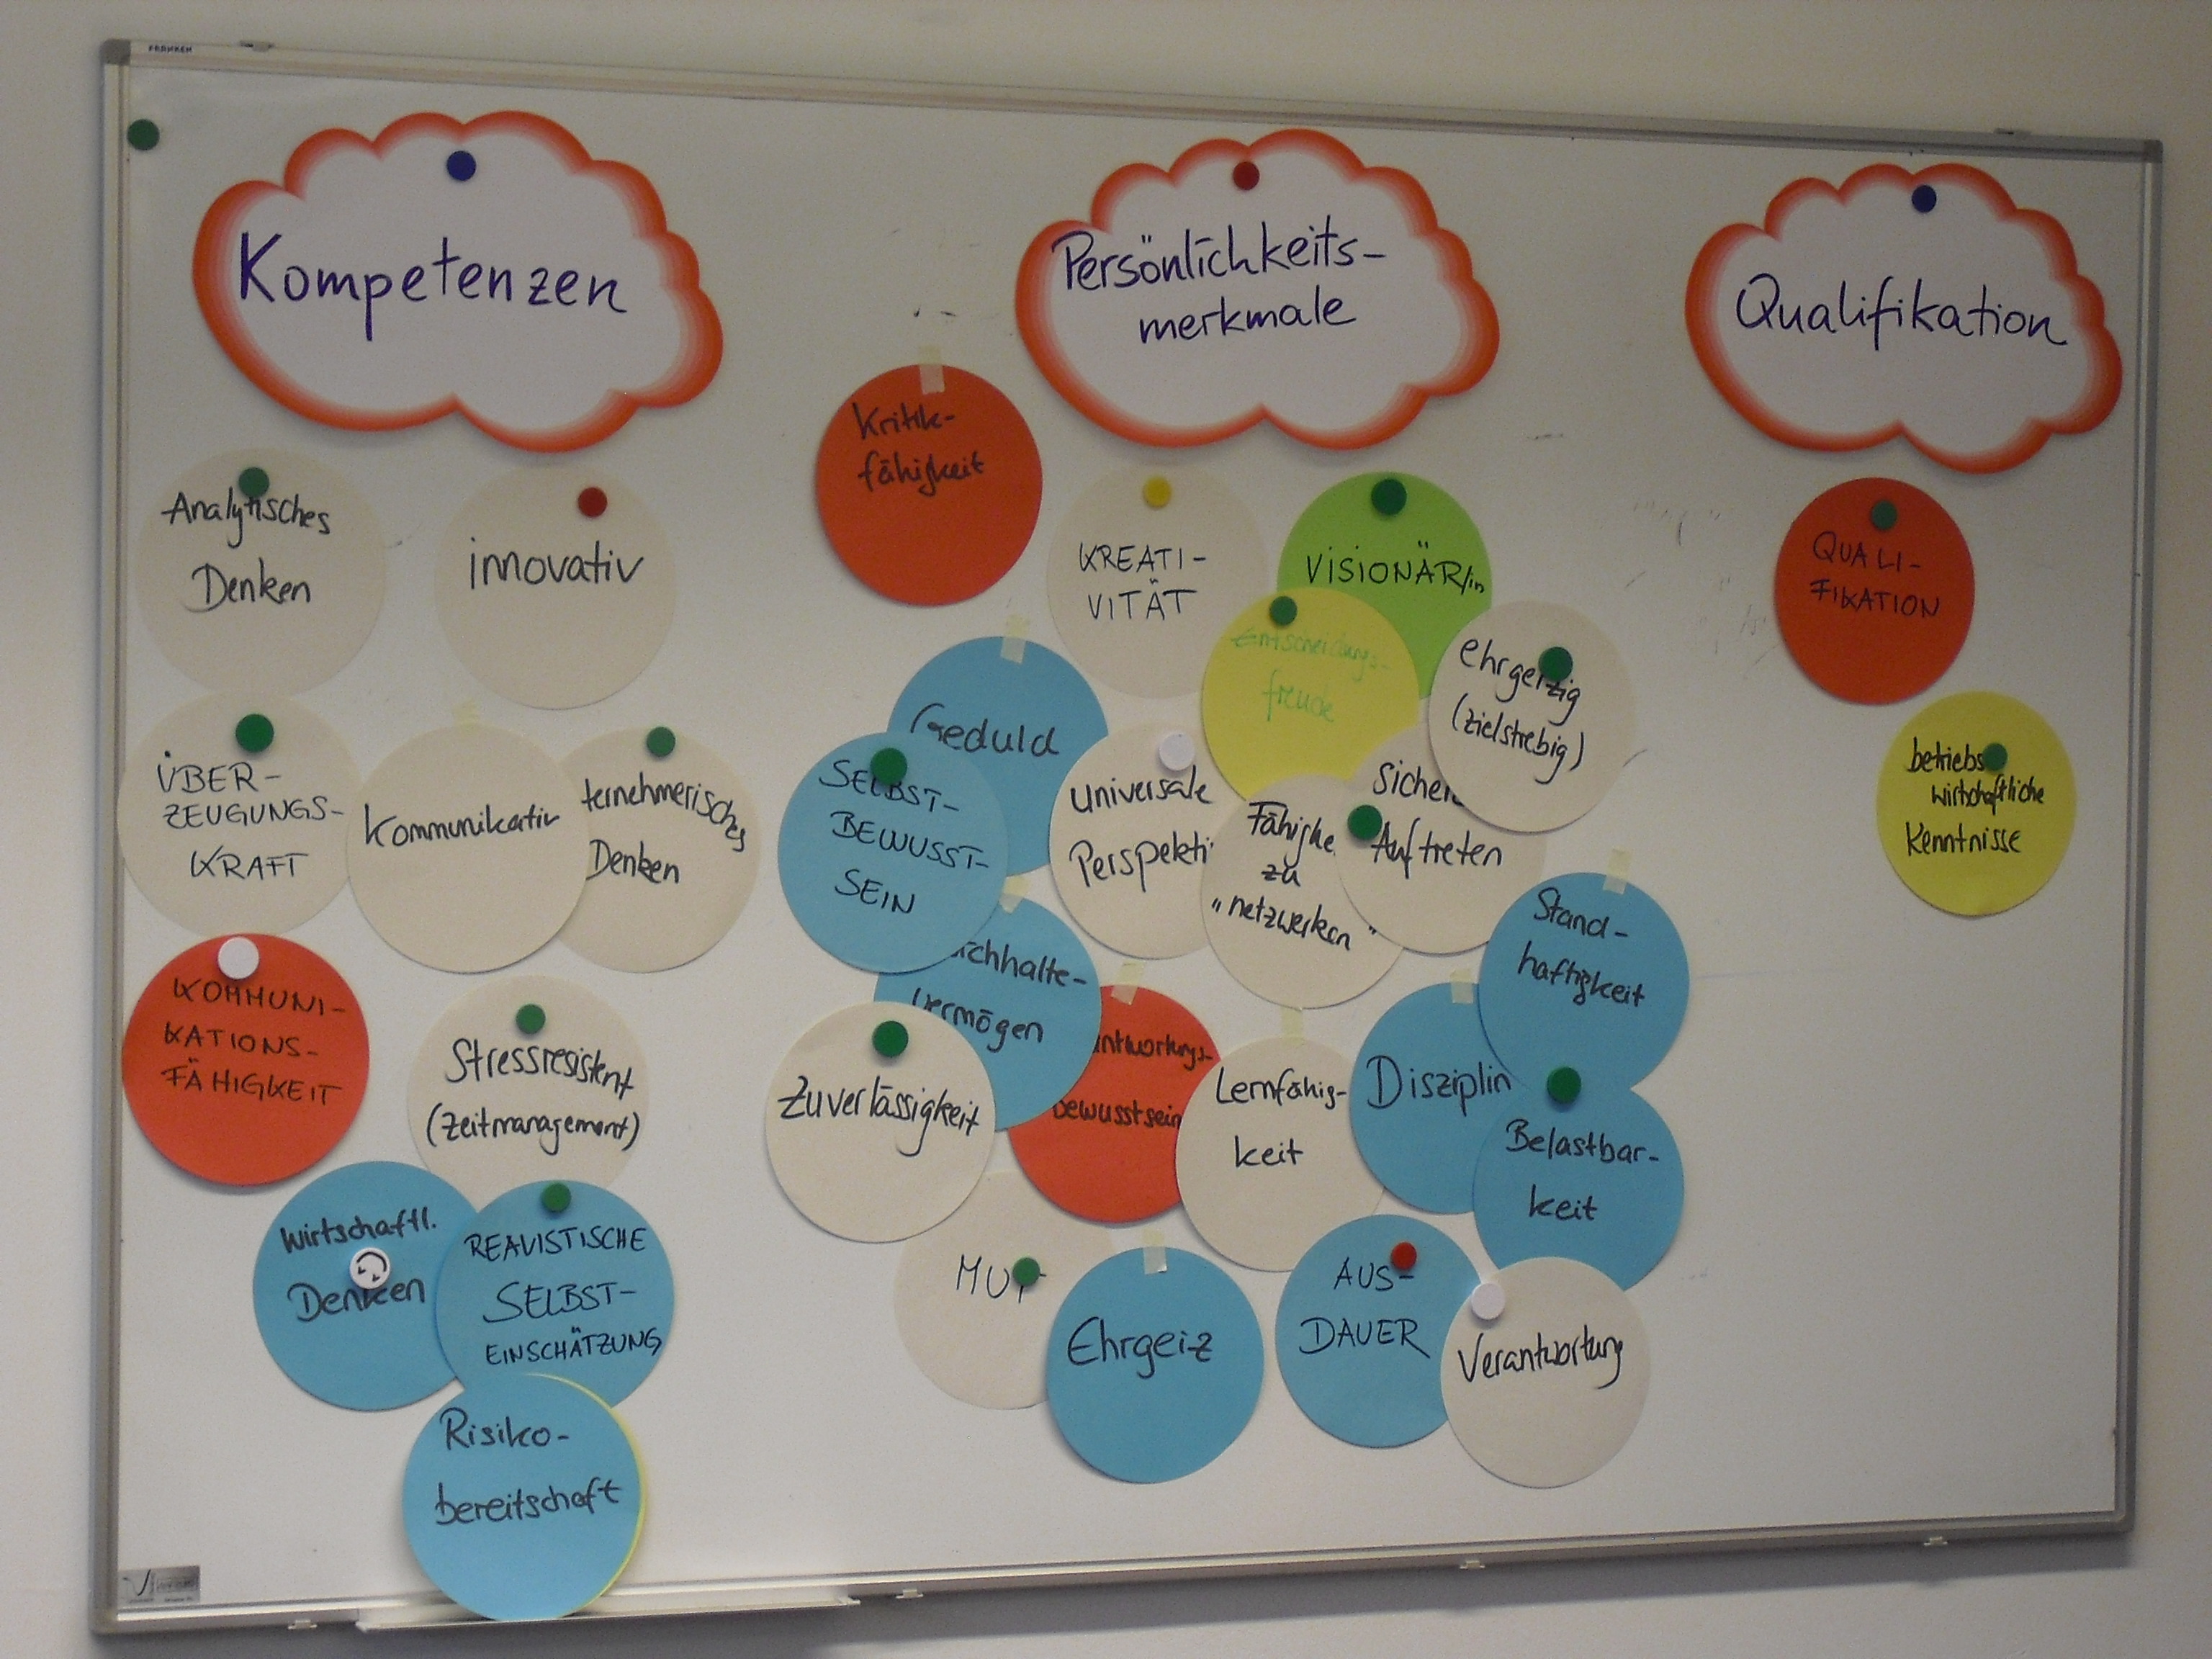 FRANKEN
Kompetenzen
Analytisches
Denken
innovativ
ÜBER-
ZEUGUNGS-
KRAFT
kommunikativ
ternehmerisches
Denken
KOMMUNI-
KATIONS-
FÄHIGKEIT
Stressresistent
(Zeitmanagement)
Wirtschaftl.
Denken
REALISTISCHE
SELBST-
EINSCHÄTZUNG
Risiko-
bereitschaft
Persönlichkeits-
merkmale
Kritik-
fähigkeit
KREATI-
VITÄT
VISIONÄR/in
Entscheidungs-
freude
ehrgeizig
(zielstrebig)
Geduld
SELBST-
BEWUSST-
SEIN
universale
Perspekti
Fähigke
zu
"netzwerken"
Sicher
Auftreten
Stand-
haftigkeit
chhalte-
vermögen
Zuverlässigkeit
antwortungs-
bewusstsein
Lernfähig-
keit
Disziplin
Belastbar-
keit
MUT
Ehrgeiz
AUS-
DAUER
Verantwortung
Qualifikation
QUALI-
FIKATION
betriebs
wirtschaftliche
Kenntnisse